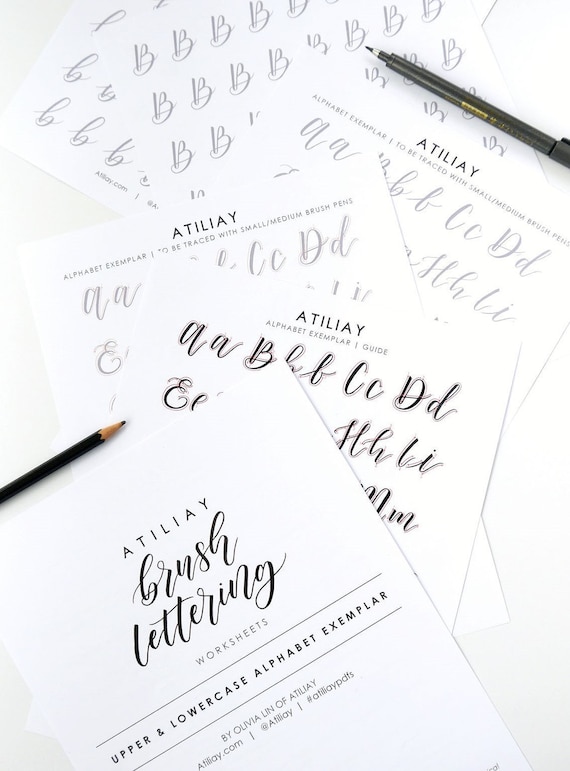 B B B B B B
b B B B B B B
b b b B B B
B B
Atiliay.com | @A
ATILIAY
ALPHABET EXEMPLAR | TO BE TRACED WITH SMALL/MEDIUM BRUSH PENS
Aa b Cc Dd
Hh Ii
ATILIAY
ALPHABET EXEMPLAR | TO BE TRACED WITH SMALL/MEDIUM BRUSH PENS
Aa Cc Dd
Ee
ATILIAY
ALPHABET EXEMPLAR | GUIDE
Aa Bb Cc Dd
Ee Hh Ii
Mm
ATILIAY
brush
lettering
WORKSHEETS
UPPER & LOWERCASE ALPHABET EXEMPLAR
BY OLIVIA LIN OF ATILIAY
Atiliay.com | @Atiliay | #atiliaypdfs